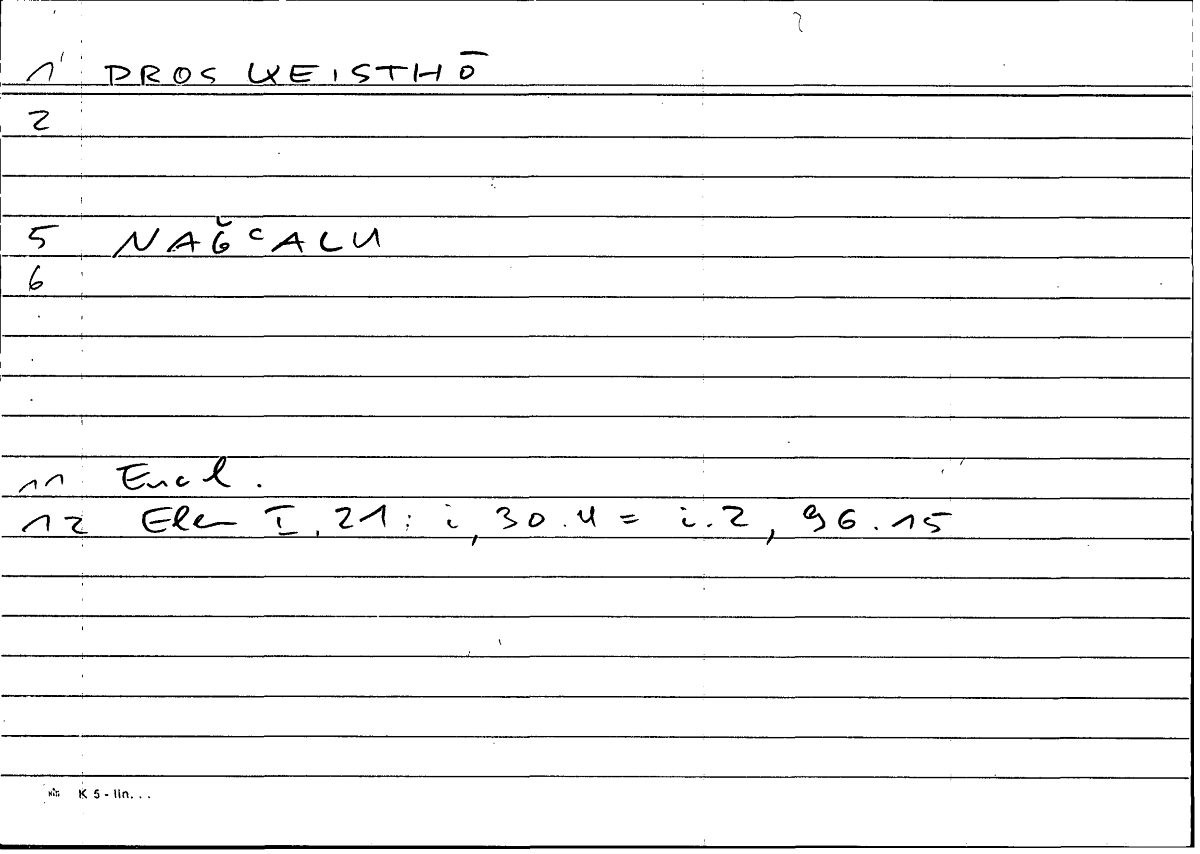 1 PROS KEISTHŌ
2
5 NAǦʿALU
6
11 Eucl.
12 Elem I, 21 : i, 30.4 = i.2, 96.15
K 5 - lin. . .